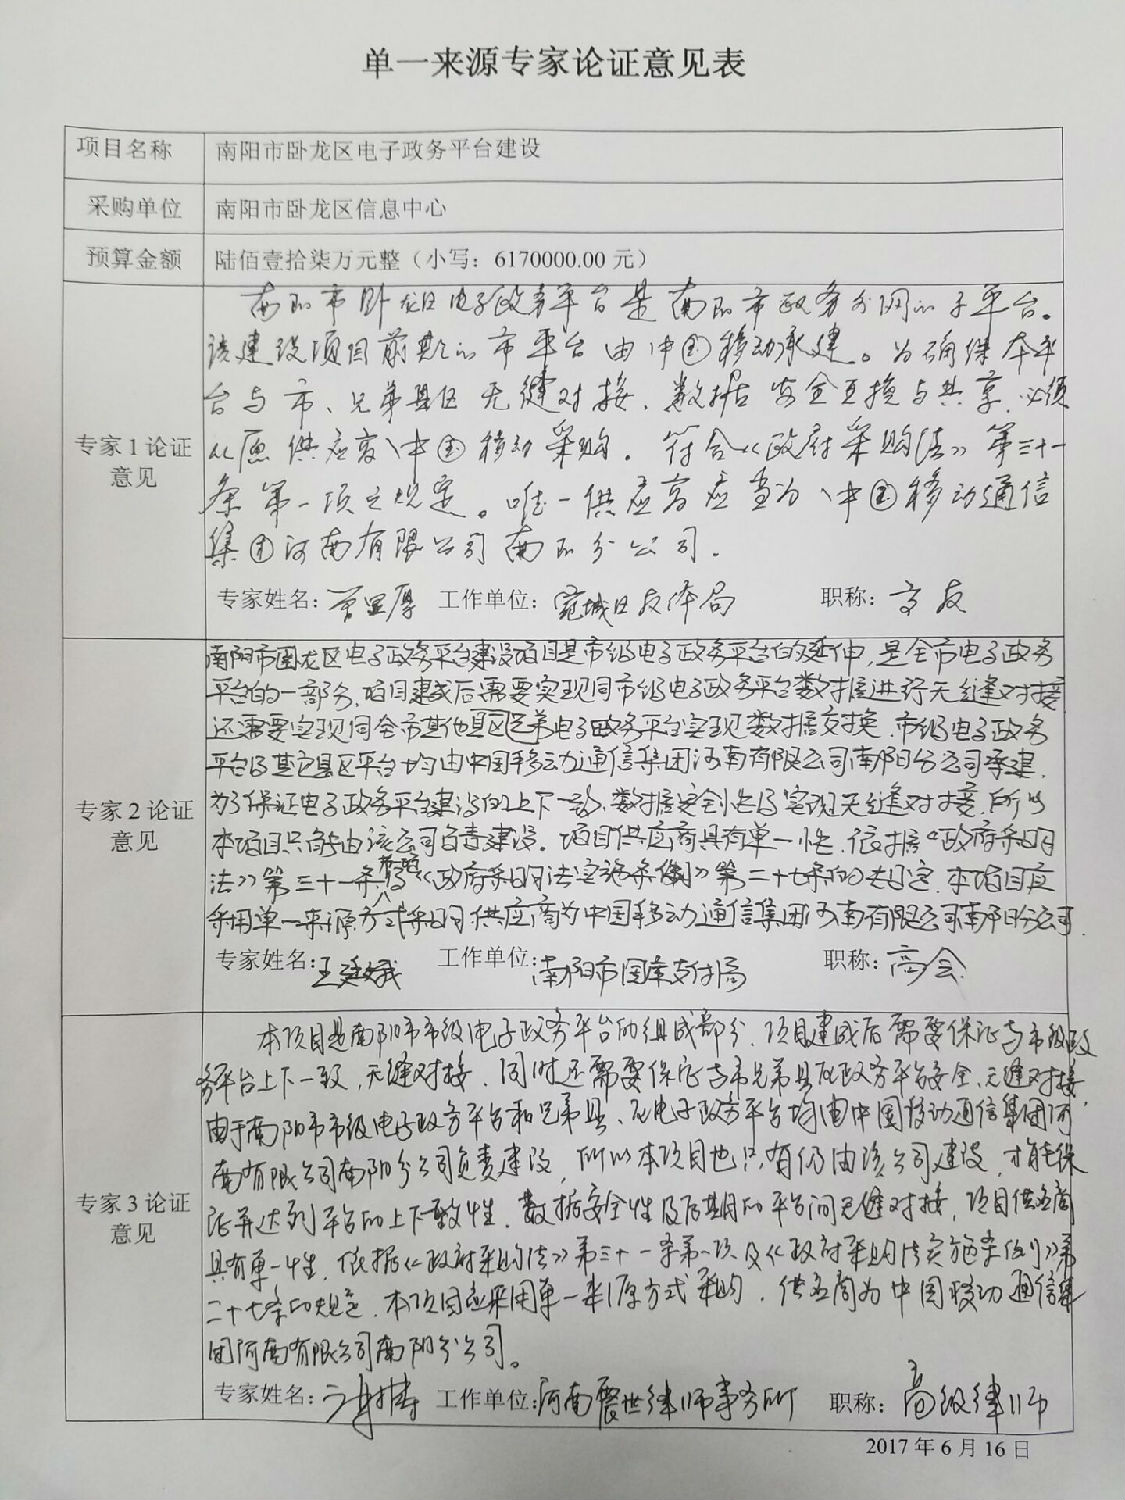 单一来源专家论证意见表
项目名称 南阳市卧龙区电子政务平台建设
采购单位 南阳市卧龙区信息中心
预算金额 陆佰壹拾柒万元整（小写：6170000.00 元）
专家 1 论证意见
南阳市卧龙区电子政务平台是南阳市政务外网的子平台。
该建设项目前期的市平台由中国移动承建。为确保本平
台与市、兄弟县区无缝对接、数据安全互换与共享，必须
从原供应商中国移动采购。符合《政府采购法》第三十一
条第一项之规定。唯一供应商应当为中国移动通信
集团河南有限公司南阳分公司。
专家姓名： 工作单位：宛城区文体局 职称：
专家 2 论证意见
南阳市卧龙区电子政务平台建设项目是市级电子政务平台的延伸，是全市电子政务
平台的一部分，项目建成后需要实现同市级电子政务平台数据进行无缝对接
还需要实现同全市其他县区兄弟电子政务平台实现数据交换，市级电子政务
平台及其它县区平台均由中国移动通信集团河南有限公司南阳分公司承建，
为了保证电子政务平台建设的上下一致，数据安全性及实现无缝对接，所以
本项目只能由该公司负责建设。项目供应商具有单一性，依据《政府采购
法》第三十一条第一项及《政府采购法实施条例》第二十七条的规定，本项目应
采用单一来源方式采购，供应商为中国移动通信集团河南有限公司南阳分公司。
专家姓名：王 工作单位：南阳市国库支付局 职称：高会
专家 3 论证意见
本项目是南阳市市级电子政务平台的组成部分，项目建成后需要保证与市级政
务平台上下一致，无缝对接，同时还需要保证与市兄弟县区政务平台安全、无缝对接，
由于南阳市市级电子政务平台和兄弟县、区电子政务平台均由中国移动通信集团河
南有限公司南阳分公司负责建设，所以本项目也只有仍由该公司建设，才能保
证并达到平台的上下一致性，数据安全性及后期的平台间无缝对接，项目供应商
具有单一性，依据《政府采购法》第三十一条第一项及《政府采购法实施条例》第
二十七条的规定，本项目应采用单一来源方式采购，供应商为中国移动通信集
团河南有限公司南阳分公司。
专家姓名： 工作单位：河南震世律师事务所 职称：高级律师
2017 年 6 月 16 日